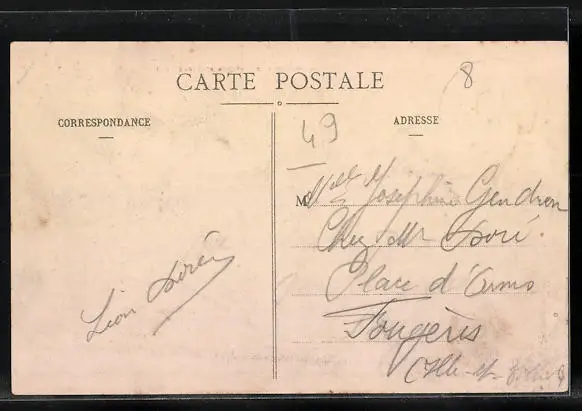 CARTE POSTALE
CORRESPONDANCE
ADRESSE
8
49
Mlle Joséphine Gendron
Chez Mr Doré.
Place d'Armes
Fougères
(Ille-et-
Léon